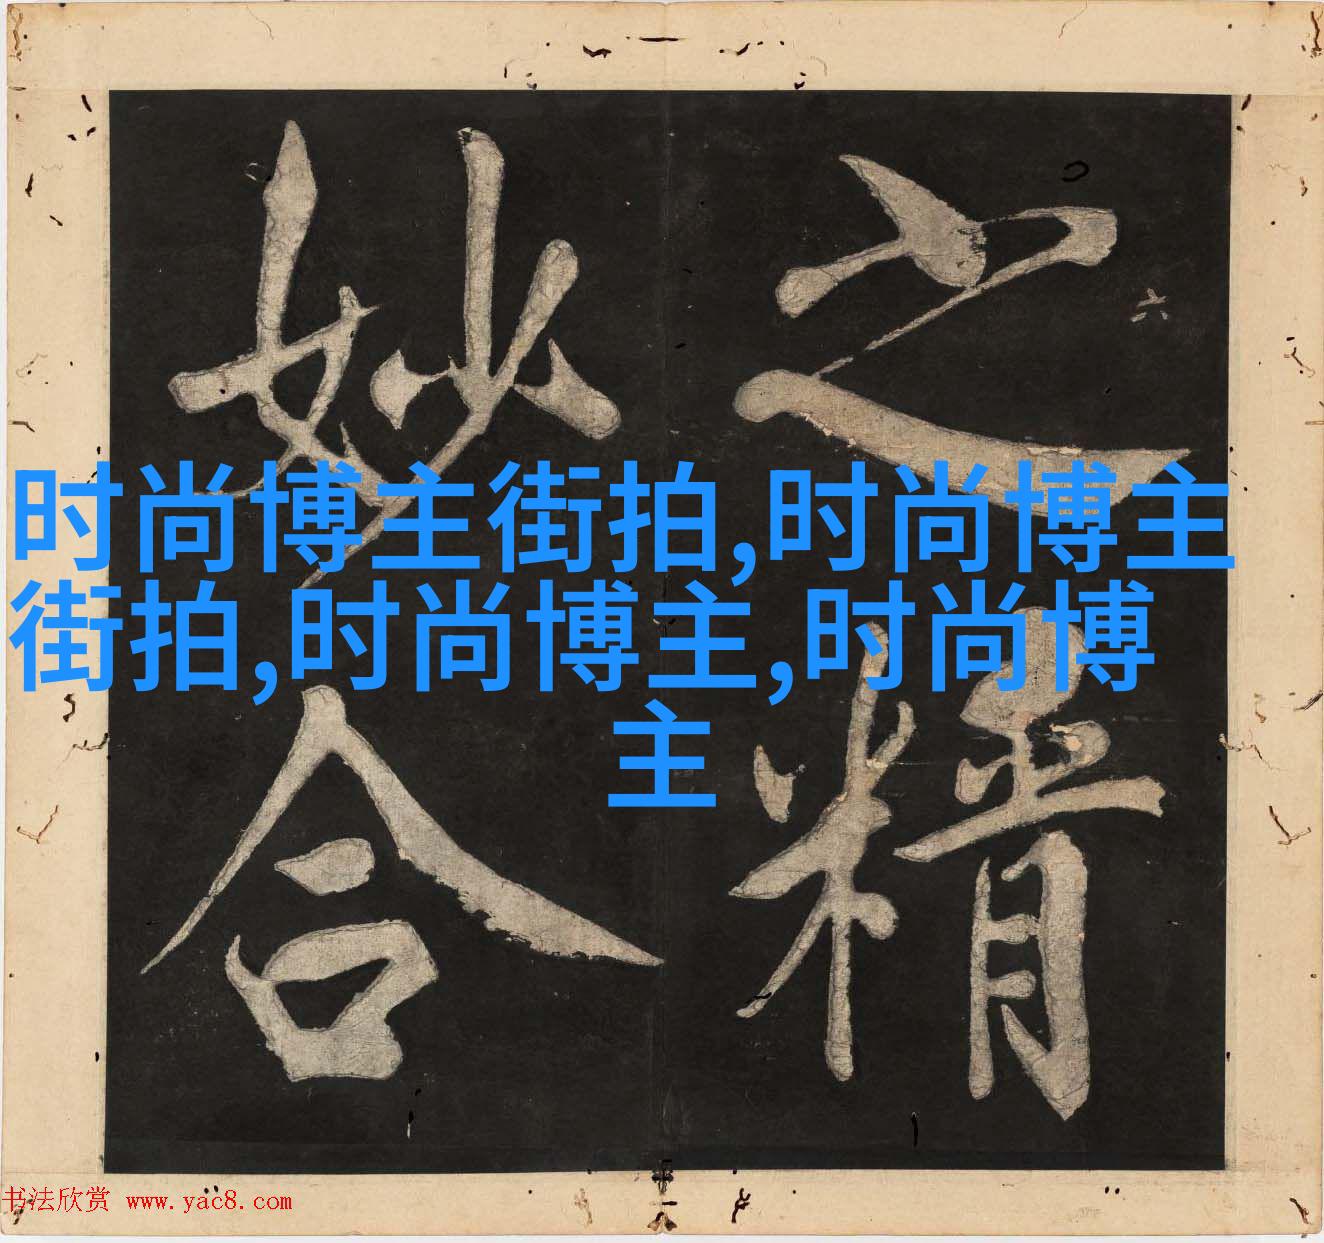 之精
妙合
六
时尚博主街拍,时尚博主
街拍,时尚博主,时尚博
主
书法欣赏 www.yac8.com